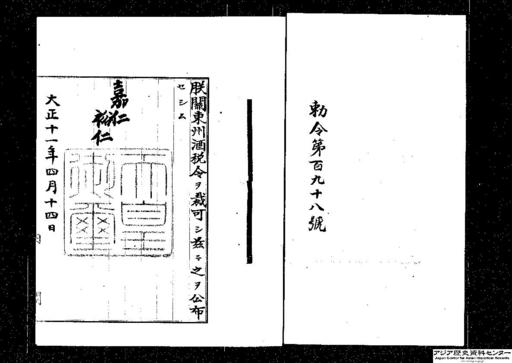 勅令第百九十八號
朕關東州酒税令ヲ裁可シ茲ニ之ヲ公布
セシム
嘉仁
裕仁
天皇御璽
大正十一年四月十四日
アジア歴史資料センター
Japan Center for Asian Historical Records